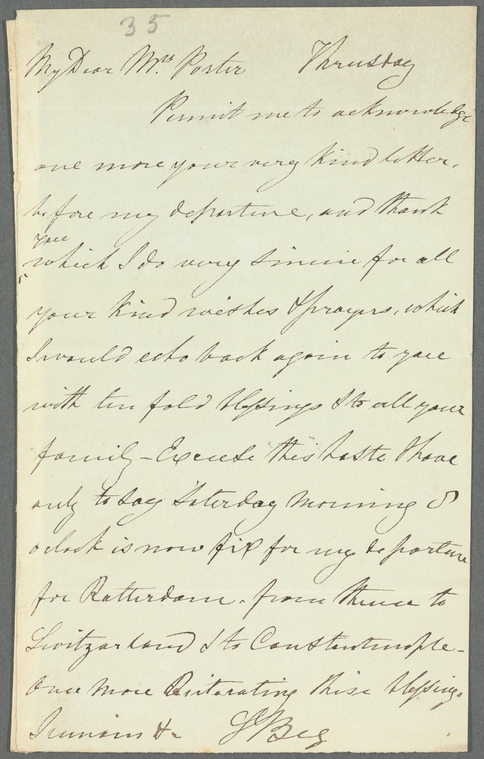 35
My Dear Mrs Porter Thrusday
Permit me to acknowledge
one more your very kind letter.
before my departure, and thank
you
which I do very sincerie for all
your kind wishes & prayers, which
I would echo back again to you
with ten fold blessings & to all your
family - Excuse this haste I have
only to say Saterday Morning 8
oclock is now fix for my departure
for Ratterdam. from thence to
Switzarland & to Constantinople -
Once More Reiterating these blessings
I remain &c